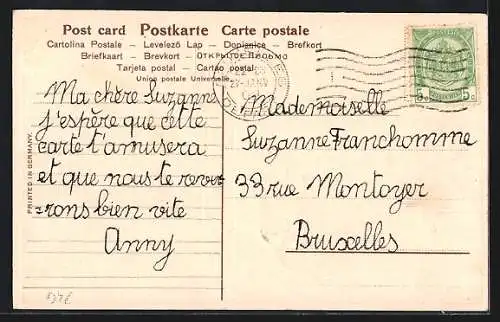 Post card Postkarte Carte postale
Cartolina Postale – Levelező Lap – Dopisnice – Brefkort
Briefkaart – Brevkort – ОТКРЫТОЕ ПИСЬМО
Tarjeta postal – Cartão postal
Union postale Universelle
PRINTED IN GERMANY.
Ma chère Suzanne
j'espère que cette
carte t'amusera
et que nous te rever
-rons bien vite
Anny
5c 5c
Mademoiselle
Suzanne Franchomme
33 rue Montoyer
Bruxelles